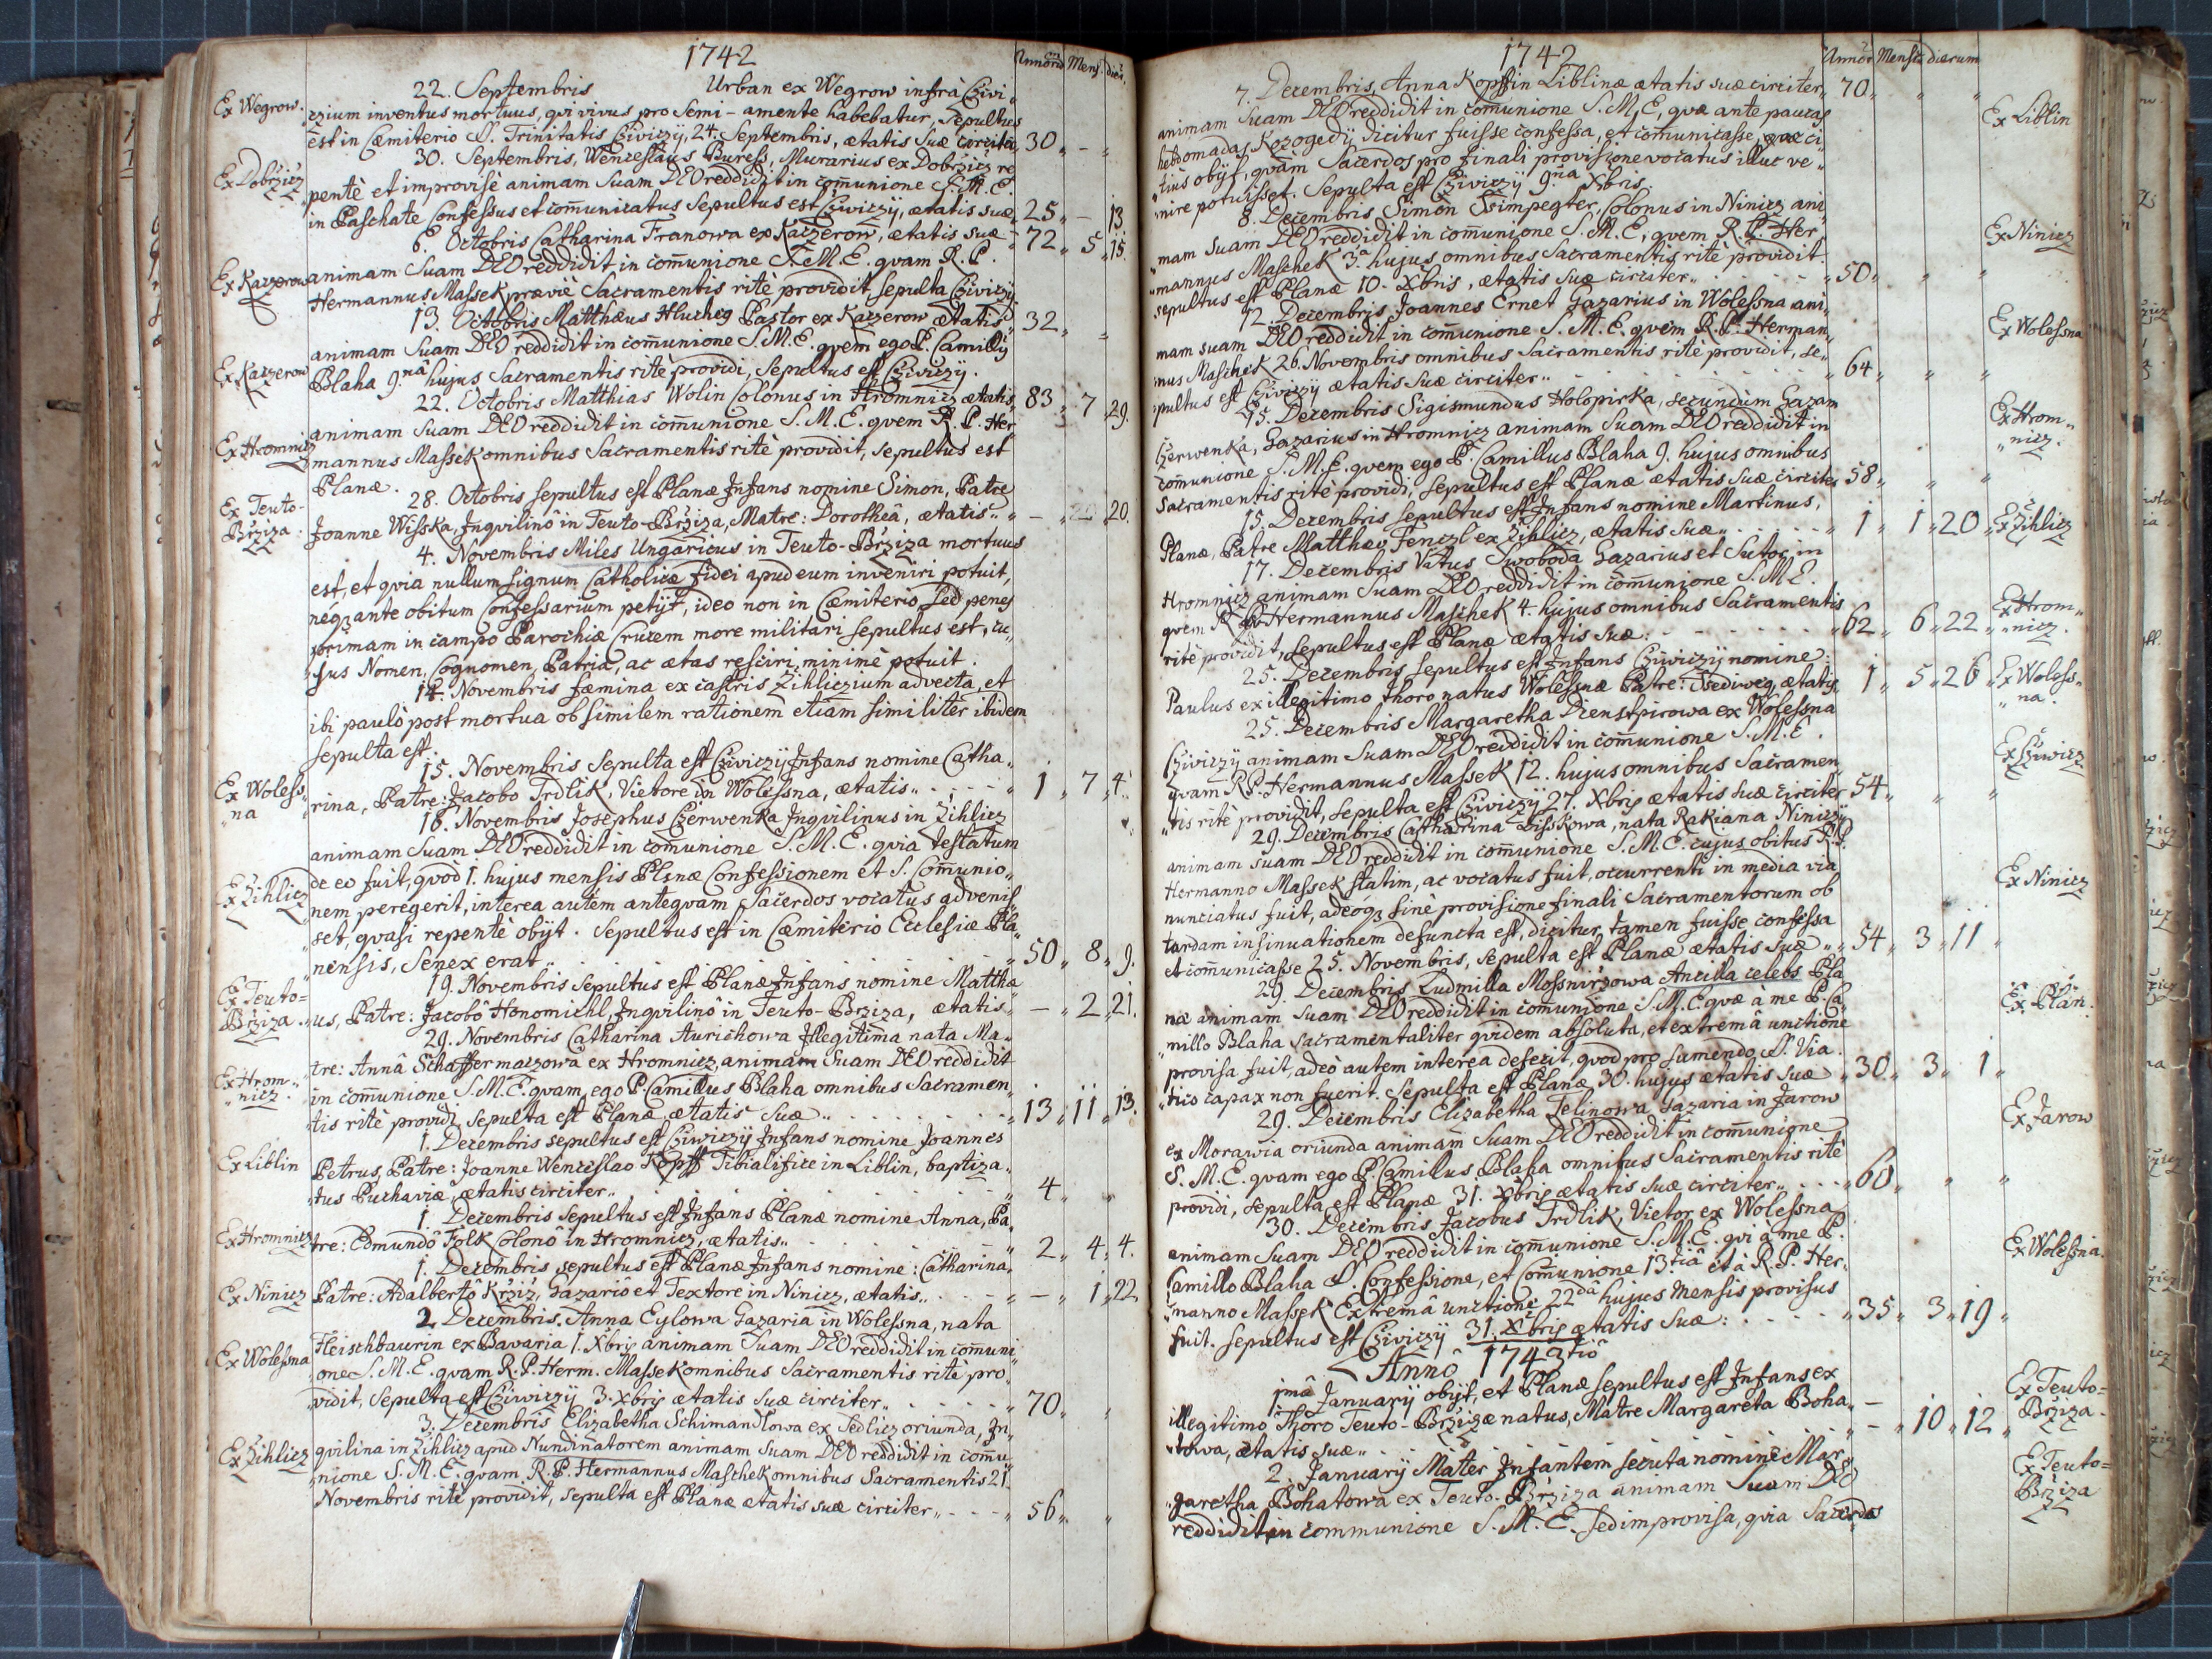 1742
Annorū Mens. dies.
22. Septembris Urban ex Wegrow infrà Cziwi„
Ex Wegrow. czium inventus mortuus, qvi vivus pro Semi-amente habebatur, Sepultus
est in Cæmiterio S. Trinitatis Cziviczÿ, 24. Septembris, ætatis Suæ circiter 30 „ - „
30. Septembris, Wenceslaus Buress, Murarius ex Dobržicz re
Ex Dobržicz pentè et improvisè animam Suam DEO reddidit in com̄unione S. M. E.
in Paschate Confessus et com̄unicatus Sepultus est Cziviczÿ, ætatis suæ 25 „ - 13
6. Octobris Catharina Franowa ex Kaczerow, ætatis suæ 72 „ 5 „ 15.
Ex Kaczerow animam Suam DEO reddidit in com̄unione S. M. E. qvam R. P.
Hermannus Massek præviè Sacramentis ritè providit, Sepulta Cziviczÿ.
13. Octobris Matthæus Hlucheg Pastor ex Kaczerow ætatis 32 „ „
animam Suam DEO reddidit in com̄unione S. M. E. qvem ego P. Camillÿ
Ex Kaczerow Blaha 9.nâ hujus Sacramentis ritè providi, Sepultus est Cziviczÿ.
22. Octobris Matthias Wolin Colonus in Hromnicz ætatis 83 „ 7 „ 29.
animam Suam DEO reddidit in com̄unione S. M. E. qvem R. P. Her„
Ex Hromnicz mannus Massek omnibus Sacramentis ritè providit, Sepultus est
Planæ.
28. Octobris sepultus est Planæ Infans nomine Simon, Patre
Ex Teuto-Bržiza: Joanne Wisska, Inqvilinô in Teuto-Bržiza, Matre: Dorotheâ, ætatis „ - „ 20 „ 20.
4. Novembris Miles Ungaricus in Teuto-Bržiza mortuus
est, et qvia nullum signum Catholicæ fidei apud eum inveniri potuit,
néqꝫ ante obitum Confessarium petÿt, ideo non in Cæmiterio, sed penes
primam in campo Parochiæ Crucem more militari sepultus est, cu„
„jus Nomen, Cognomen, Patria, ac ætas resciri minimè potuit.
14. Novembris fæmina ex castris Žihliczium advecta, et
ibi paulò post mortua ob similem rationem etiam similiter ibidem
sepulta est.
15. Novembris Sepulta est Cziviczÿ Infans nomine Catha„
Ex Woless„na „rina, Patre: Jacobo Trdlik, Vietore in Wolessna, ætatis „ 1 „ 7 „ 4.
18. Novembris Josephus Czerwenka Inqvilinus in Žihlicz
animam Suam DEO reddidit in com̄unione S. M. E. qvia testatum
de eo fuit, qvòd 1. hujus mensis Planæ Confessionem et S. Com̄unio„
Ex Žihlicz nem peregerit, interea autem anteqvam Sacerdos vocatus advenis„
„set, qvasi repentè obÿt. Sepultus est in Cæmiterio Ecclesiæ Pla„
„nensis, Senex erat „ 50 „ 8 „ 9.
19. Novembris sepultus est Planæ Infans nomine Matthæ
Ex Teuto=Bržiza. „us, Patre: Jacobô Honomichl, Inqvilinô in Teuto-Bržiza, ætatis - „ 2 „ 21.
29. Novembris Catharina Aurichowa Illegitima nata Ma„
„tre: Annâ Schaffermaczowâ ex Hromnicz, animam Suam DEO reddidit
Ex Hrom„nicz. in com̄unione S. M. E. qvam ego P. Camillus Blaha omnibus Sacramen„
„tis ritè providi, sepulta est Planæ ætatis Suæ „ 13 „ 11 „ 13.
1. Decembris sepultus est Cziviczÿ Infans nomine Joannes
Ex Liblin Petrus, Patre: Joanne Wenceslao Kopff Tibialifice in Liblin, baptiza„
„tus Puchaviæ, ætatis circiter „ 4 „ „
1. Decembris sepultus est Infans Planæ nomine Anna, Pa„
Ex Hromnicz tre: Edmundô Folk Colonô in Hromnicz, ætatis „ 2 „ 4 „ 4.
1. Decembris sepultus est Planæ Infans nomine: Catharina,
Ex Ninicz Patre: Adalbertô Kržiž, Gazariô et Textore in Ninicz, ætatis „ - „ 1 „ 22
2 Decembris. Anna Eylowa Gazaria in Wolessna, nata
Ex Wolessna Fleischbaurin ex Bavaria 1. Xbris animam Suam DEO reddidit in com̄uni„
„one S. M. E. qvam R. P. Herm. Massek omnibus Sacramentis ritè pro„
„vidit, Sepulta est Cziviczÿ 3. Xbris ætatis Suæ circiter „ 70 „ „
3. Decembris Elizabetha Schimandlowa ex Sedlicz oriunda, In„
Ex Žihlicz qvilina in Žihlicz apud Nundinatorem animam Suam DEO reddidit in com̄u„
„nione S. M. E. qvam R. P. Hermannus Maschek omnibus Sacramentis 21.
Novembris ritè providit, sepulta est Planæ ætatis suæ circiter „ 56 „ „
1742
Annor̄ Mensiū dierum
7. Decembris, Anna Kopffin Liblinæ ætatis suæ circiter 70 „ „ „
animam Suam DEO reddidit in com̄unione S. M. E, qvæ ante paucas Ex Liblin
hebdomadas Kozogedÿ dicitur fuisse confessa, et com̄unicasse, qvæ ci„
„tiùs obÿt, qvàm Sacerdos pro finali provisione vocatus illuc ve„
„nire potuisset. Sepulta est Cziviczÿ 9.na Xbris
8. Decembris Simon Ssimpegter, Colonus in Ninicz ani„
„mam Suam DEO reddidit in com̄unione S. M. E, qvem R. P. Her„ Ex Ninicz
„mannus Maschek 3.a hujus omnibus Sacramentis ritè providit.
sepultus est Planæ 10. Xbris, ætatis Suæ circiter „ 50 „ „ „
12. Decembris Joannes Ernet Gazarius in Wolessna ani„
mam suam DEO reddidit in com̄unione S. M. E. qvem R. P. Herman„ Ex Wolessna
nus Maschek 26. Novembris omnibus Sacramentis ritè providit, se„
„pultus est Cziviczÿ ætatis Suæ circiter „ 64 „ „ „
15. Decembris Sigismundus Holopirka, secundùm Gazam
Czerwenka, Gazarius in Hromnicz animam Suam DEO reddidit in Ex Hrom„nicz.
com̄unione S. M. E. qvem ego P. Camillus Blaha 9. hujus omnibus
Sacramentis ritè providi, sepultus est Planæ ætatis Suæ circiter 58 „ „ „
15. Decembris sepultus est Infans nomine Martinus,
Planæ, Patre Matthæo Fenczl ex Žihlicz, ætatis Suæ „ 1 „ 1 „ 20 „ Ex Žihlicz
17. Decembris Vitus Swoboda Gazarius et Sutor in
Hromnicz animam Suam DEO reddidit in com̄unione S. M. E.
qvem R. P. Hermannus Maschek 4. hujus omnibus Sacramentis Ex Hrom„nicz.
ritè providit, sepultus est Planæ ætatis Suæ: 62 „ 6 „ 22 „
25. Decembris sepultus est Infans Cziviczÿ nomine:
Paulus ex illegitimo thoro natus Wolessnæ Patre: Ssediweg, ætatis 1 „ 5 „ 26 „ Ex Woless„na.
25. Decembris Margaretha Dienstpirowa ex Wolessna
Cziviczÿ animam Suam DEO reddidit in com̄unione S. M. E. Ex Cziwicz
qvam R. P. Hermannus Massek 12. hujus omnibus Sacramen„
„tis ritè providit, sepulta est Cziviczÿ 27. Xbris ætatis Suæ circiter 54 „ „ „
29. Decembris Catharina Lisskowa, nata Rakiana Niniczÿ
animam suam DEO reddidit in com̄unione S. M. E. cujus obitus R. P.
Hermanno Massek statim, ac vocatus fuit, occurrenti in media via Ex Ninicz
nunciatus fuit, adeóqꝫ sinè provisione finali Sacramentorum ob
tardam insinuationem defuncta est, dicitur tamen fuisse confessa
et com̄unicasse 25. Novembris, sepulta est Planæ ætatis Suæ „ 54 „ 3 „ 11 „
29. Decembris Ludmilla Mossniržowa Ancilla celebs Pla„
„næ animam Suam DEO reddidit in com̄unione S. M. E. qvæ à me P. Ca„ Ex Plan.
„millo Blaha sacramentaliter qvidem absoluta, et extremâ unctione
provisa fuit, adeò autem interea defecit, qvod pro sumendo S. Via„
„tico capax non fuerit. Sepulta est Planæ 30. hujus ætatis Suæ „ 30 „ 3 „ 1 „
29. Decembris Elizabetha Jelinowa Gazaria in Jarow Ex Jarow
ex Morawia oriunda animam Suam DEO reddidit in com̄unione
S. M. E. qvam ego P. Camillus Blaha omnibus Sacramentis ritè
providi, sepulta est Planæ 31. Xbris ætatis suæ circiter „ 60 „ „ „
30. Decembris Jacobus Trdlik, Vietor ex Wolessna
animam Suam DEO reddidit in com̄unione S. M. E. qvi à me P. Ex Wolessna.
Camillo Blaha S. Confessione, et Com̄unione 13.tiâ et à R. P. Her„
„manno Massek Extremâ unctione 22dâ hujus Mensis provisus
fuit. sepultus est Cziviczÿ 31. Xbris ætatis Suæ: 35 „ 3 „ 19 „
Annô 1743tiô
1mâ Januarÿ obÿt, et Planæ sepultus est Infans ex Ex Teuto=Bržiza.
illegitimo Thoro Teuto-Bržizæ natus, Matre Margareta Boha„ -
„towa, ætatis suæ „ - „ 10 „ 12 „
2. Januarÿ Mater Infantem secuta nomine Mar„ Ex Teuto=Bržiza
„garetha Bohatowa ex Teuto-Bržiza animam Suam DEO
reddidit in communione S. M. E. sed improvisa, qvia Sacerdos